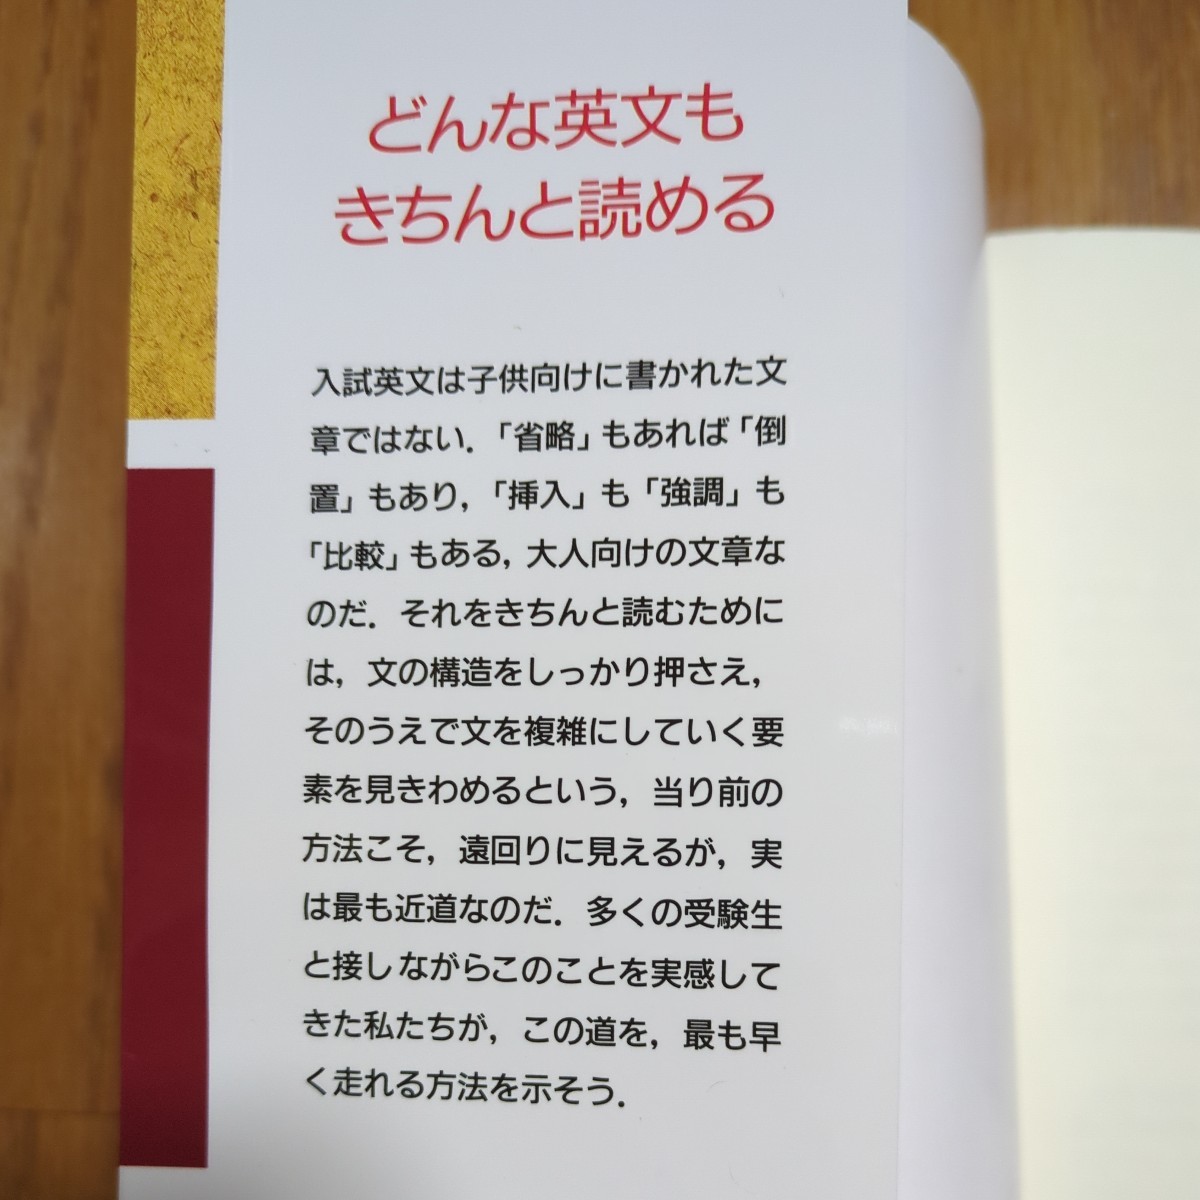 どんな英文も
きちんと読める
入試英文は子供向けに書かれた文
章ではない．「省略」もあれば「倒
置」もあり，「挿入」も「強調」も
「比較」もある，大人向けの文章な
のだ．それをきちんと読むために
は，文の構造をしっかり押さえ，
そのうえで文を複雑にしていく要
素を見きわめるという，当り前の
方法こそ，遠回りに見えるが，実
は最も近道なのだ．多くの受験生
と接しながらこのことを実感して
きた私たちが，この道を，最も早
く走れる方法を示そう．